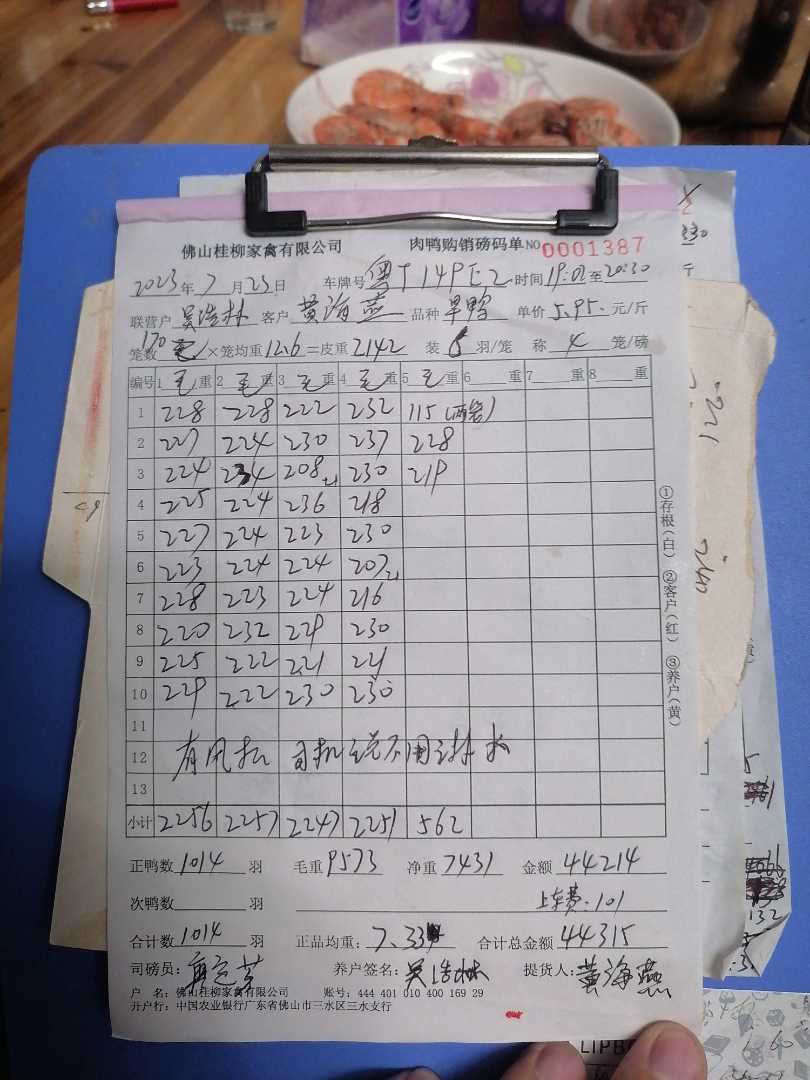 佛山桂柳家禽有限公司 肉鸭购销磅码单 NO 0001387
2023年7月23日 车牌号 粤T149E2 时间19:01至20:30
联营户 吴浩林 客户 黄海燕 品种 旱鸭 单价 5.95 元/斤
笼数 170 ×笼均重 12.6 =皮重 2142 装 5 羽/笼 称 4 笼/磅
编号 1 毛 重 2 毛 重 3 毛 重 4 毛 重 5 毛 重 6 重 7 重 8 重
1 228 228 222 232 115 (两笼)
2 227 224 230 237 228
3 224 234 208 230 219
4 225 224 236 218
5 227 224 223 230
6 223 224 224 207
7 228 223 224 216
8 220 232 229 230
9 225 222 221 221
10 229 222 230 230
11
12 有风扇 司机说不用淋水
13
小计 2256 2257 2247 2251 562
正鸭数 1014 羽 毛重 9573 净重 7431 金额 44214
次鸭数 羽 上车费:101
合计数 1014 羽 正品均重: 7.33 合计总金额 44315
司磅员: 养户签名: 吴浩林 提货人: 黄海燕
户 名: 佛山桂柳家禽有限公司 账号: 444 401 010 400 169 29
开户行: 中国农业银行广东省佛山市三水区三水支行
①存根(白) ②客户(红) ③养户(黄)